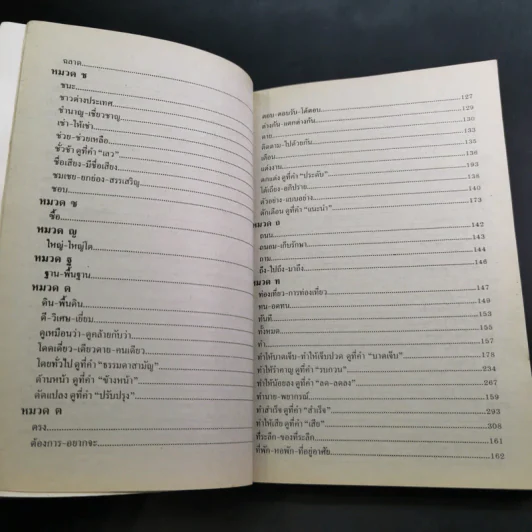 ฉลาด
หมวด ช
ชนะ
ชาวต่างประเทศ
ชำนาญ-เชี่ยวชาญ
เช่า-ให้เช่า
ช่วย-ช่วยเหลือ
ชั่วช้า ดูที่คำ "เลว"
ชื่อเสียง-มีชื่อเสียง
ชมเชย-ยกย่อง-สรรเสริญ
ชอบ
หมวด ซ
ซื้อ
หมวด ญ
ใหญ่-ใหญ่โต
หมวด ฐ
ฐาน-พื้นฐาน
หมวด ด
ดิน-พื้นดิน
ดี-วิเศษ-เยี่ยม
ดูเหมือนว่า-ดูคล้ายกับว่า
โดดเดี่ยว-เดียวดาย-คนเดียว
โดยทั่วไป ดูที่คำ "ธรรมดาสามัญ"
ด้านหน้า ดูที่คำ "ข้างหน้า"
ดัดแปลง ดูที่คำ "ปรับปรุง"
หมวด ต
ตรง
ต้องการ-อยากจะ
ตอบ-ตอบรับ-โต้ตอบ 127
ต่างกัน-แตกต่างกัน 129
ตาย 130
ติดตาม-ไปด้วยกัน 133
เตือน 135
แต่งงาน 136
ตกแต่ง ดูที่คำ "ประดับ" 193
โต้เถียง-อภิปราย 138
ตัวอย่าง-แบบอย่าง 140
ตักเตือน ดูที่คำ "แนะนำ" 173
หมวด ถ
ถนน 142
ถนอม-เก็บรักษา 143
ถาม 144
ถึง-ไปถึง-มาถึง 146
หมวด ท
ท่องเที่ยว-การท่องเที่ยว 147
ทน-อดทน 149
ทันที 153
ทั้งหมด 155
ทำ 157
ทำให้บาดเจ็บ-ทำให้เจ็บปวด ดูที่คำ "บาดเจ็บ" 178
ทำให้รำคาญ ดูที่คำ "รบกวน" 234
ทำให้น้อยลง ดูที่คำ "ลด-ลดลง" 267
ทำนาย-พยากรณ์ 159
ทำสำเร็จ ดูที่คำ "สำเร็จ" 293
ทำให้เสีย ดูที่คำ "เสีย" 308
ที่ระลึก-ของที่ระลึก 161
ที่พัก-หอพัก-ที่อยู่อาศัย 162